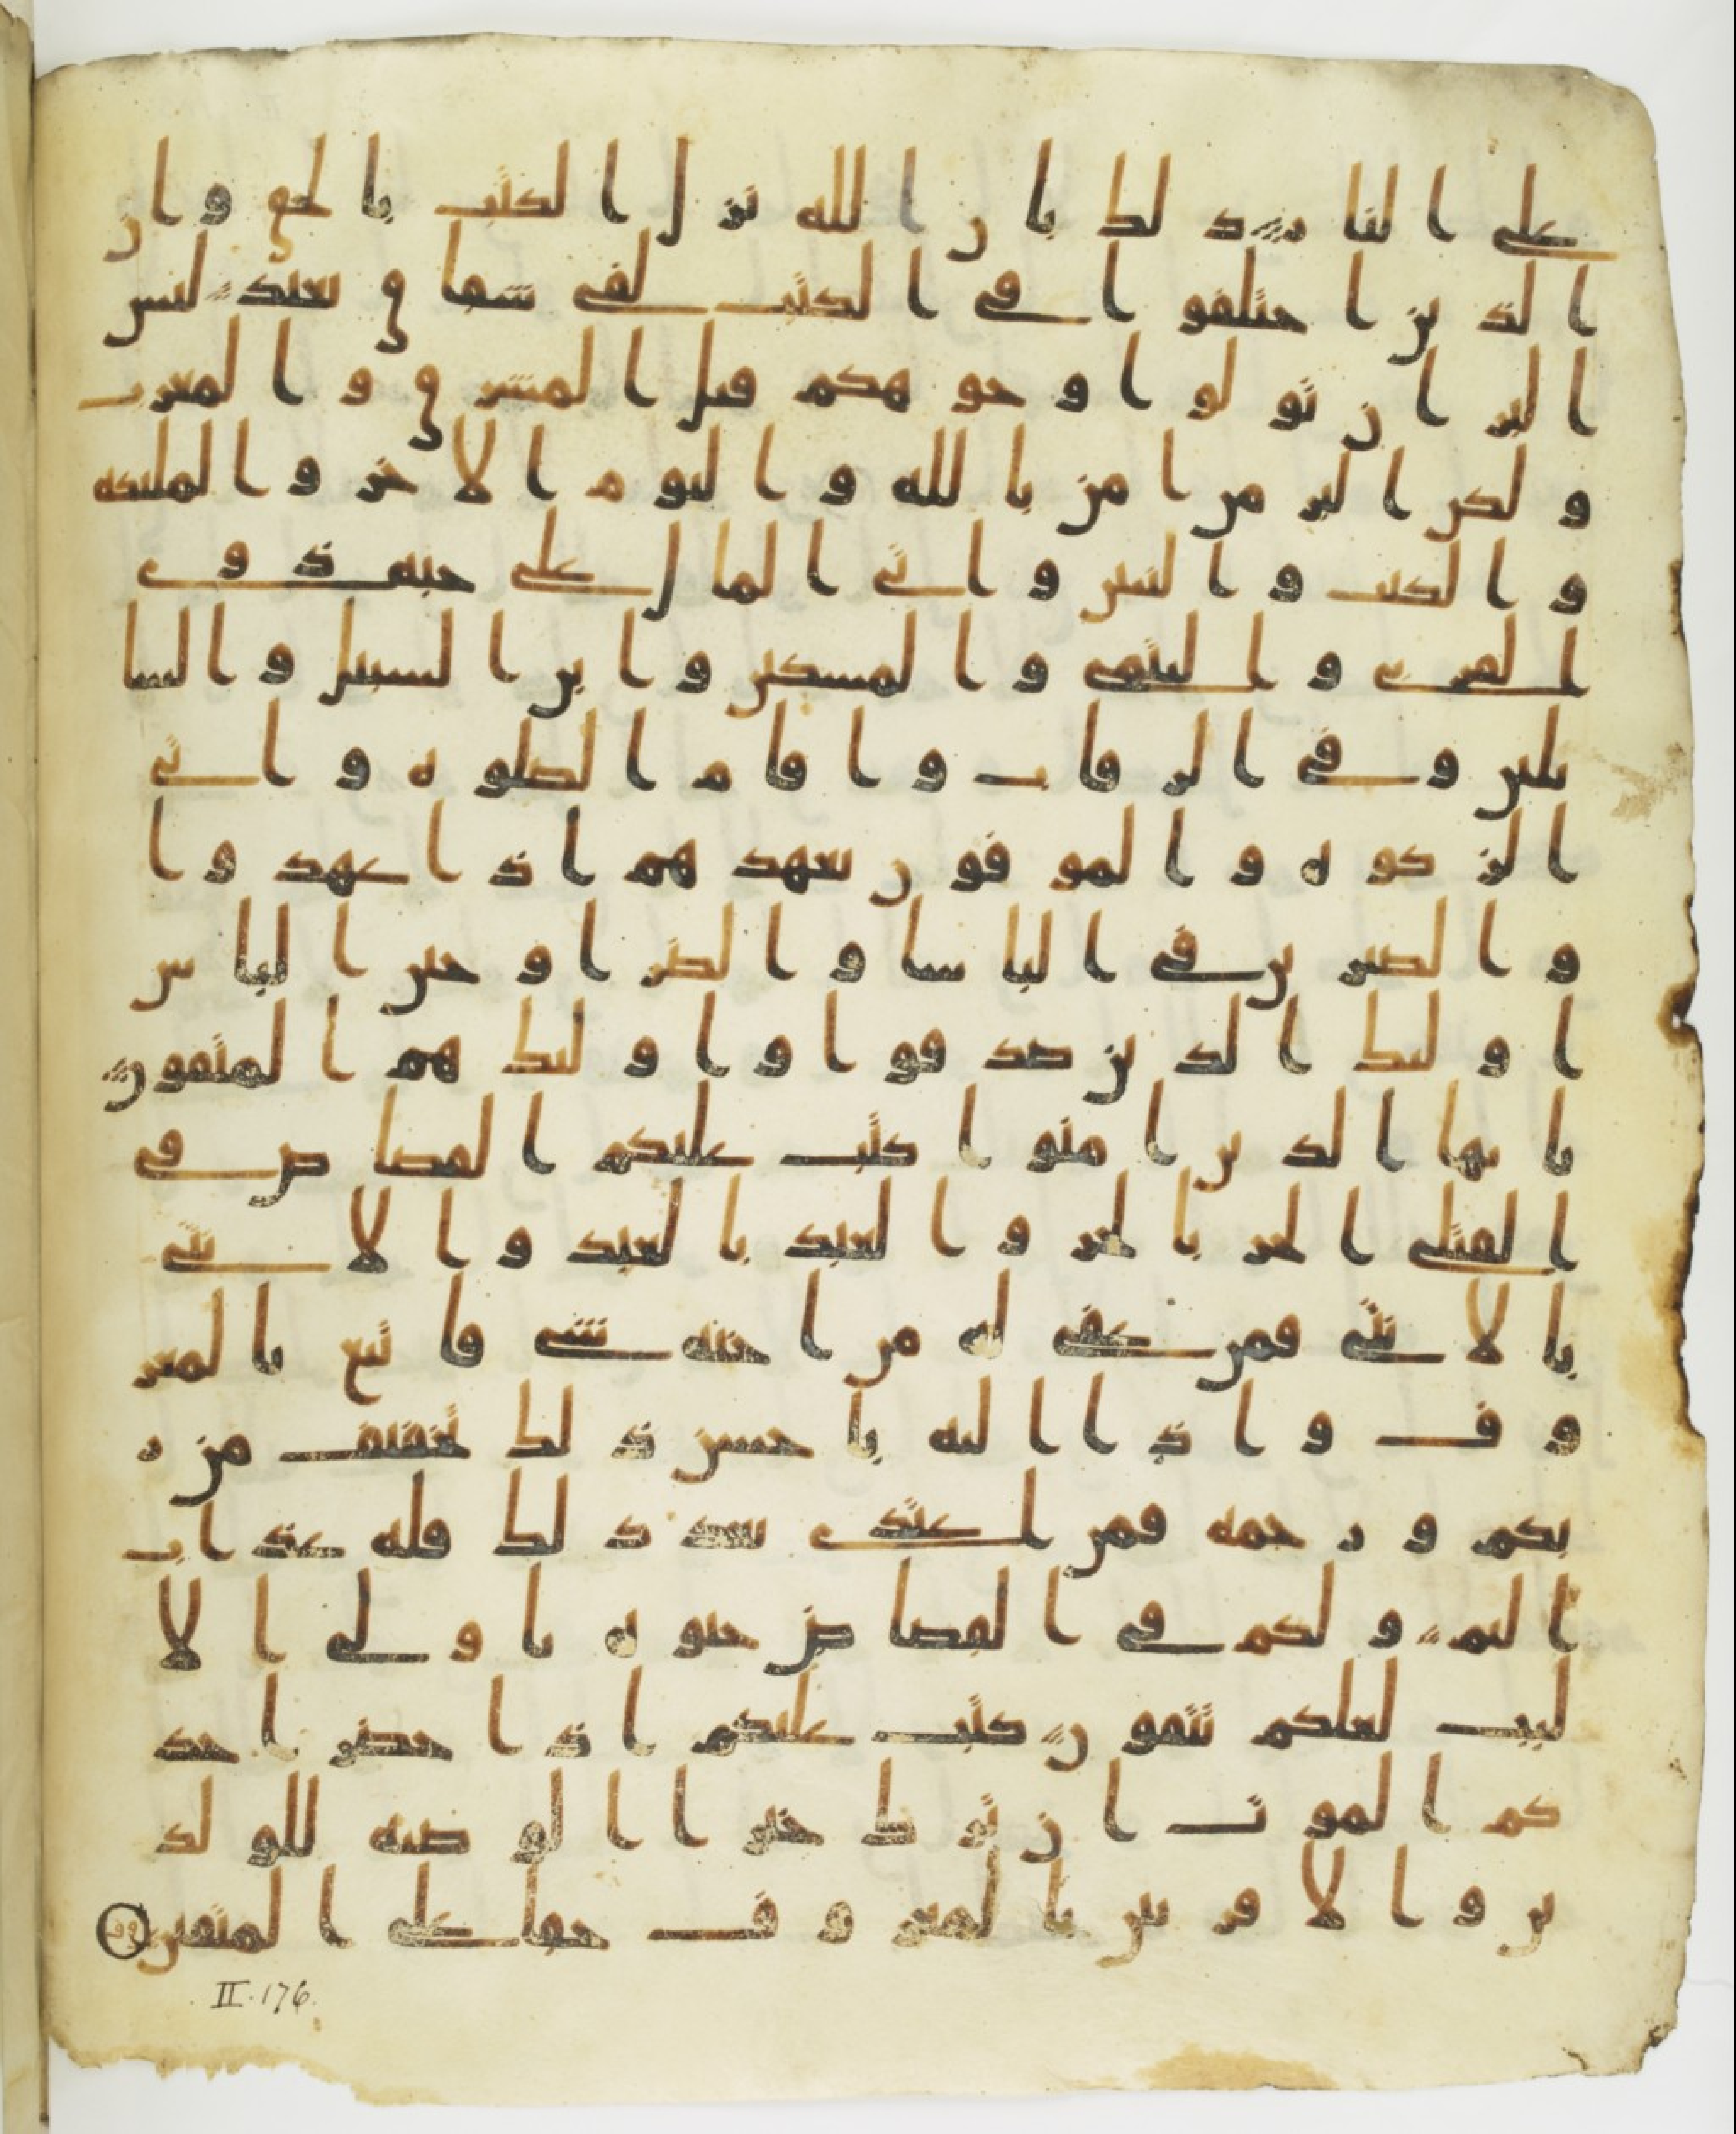 على النار ذلك بان الله نزل الكتب بالحق وان
الذين اختلفوا في الكتب لفي شقاق بعيد ليس
البر ان تولوا وجوهكم قبل المشرق والمغرب
ولكن البر من امن بالله واليوم الاخر والملئكه
والكتب والنبين واتى المال على حبه ذوى
القربى واليتمى والمسكين وابن السبيل والسا
ئلين وفي الرقاب واقام الصلوه واتى
الزكوه والموفون بعهدهم اذا عهدوا
والصبرين في الباسا والضرا وحين الباس
اوليك الذين صدقوا واوليك هم المتقون
يايها الذين امنوا كتب عليكم القصاص في
القتلى الحر بالحر والعبد بالعبد والانثى
بالانثى فمن عفى له من اخيه شي فاتبع بالمعر
وف واذا اليه باحسن ذلك تخفيف من ر
بكم ورحمه فمن اعتدى بعد ذلك فله عذاب
اليم ولكم في القصاص حيوه ياولي الا
لبب لعلكم تتقون كتب عليكم اذا حضر احد
كم الموت ان ترك خيرا الوصيه للولد
ين والاقربين بالمعروف حقا على المتقين
II.176.